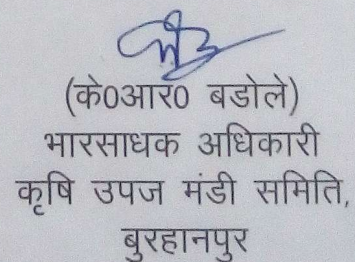 (के0आर0 बडोले)
भारसाधक अधिकारी
कृषि उपज मंडी समिति,
बुरहानपुर